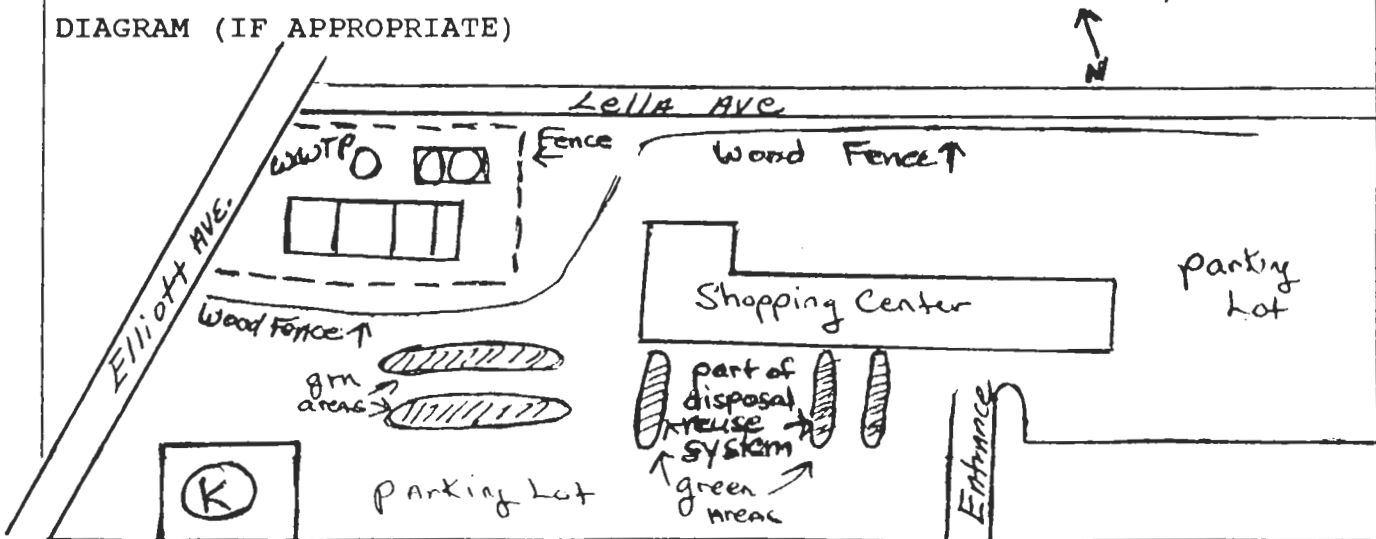 DIAGRAM (IF APPROPRIATE)
N
Lella AVE
WWTP
Fence
Wood Fence
Elliott AVE.
Wood Fence
Shopping Center
Parking
Lot
grn
areas
part of
disposal
reuse
system
green
Areas
Entrance
K
Parking Lot